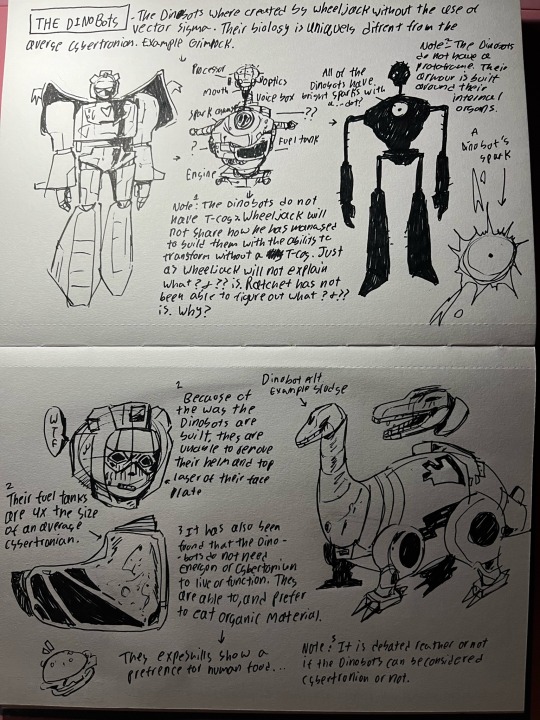 THE DINOBOTS
- The Dinobots where created by wheeljack without the use of
vector Sigma. Their biology is uniquely difrent from the
averse cybertronian. Example Grimlock.
Procesor
Optics
Mouth
Voice box
Spark
??
?
Fuel tank
Engine
All of the
Dinobots have
bright sparks with
a. dot?
Note: The Dinobots
do not have a
protoframe. Their
armour is built
around their
internal
organs.
A
Dinobot's
spark
Note: The Dinobots do not
have T-cogs wheeljack will
not share how he has managed
to build them with the ability to
transform without a T-cog. Just
as wheeljack will not explain
what ? & ?? is. Ratchet has not
been able to figure out what ? & ??
is. Why?
WTF
2
Because of
the was the
Dinobots are
built, they are
unable to remove
their helm and top
laser of their face
plate
Dinobot Alt
Example Sludge
2
Their fuel tanks
are 4x the size
of an average
cybertronian.
3 It has also been
found that the Dino-
-bots do not need
energon or Cybertonium
to live or function. They
are able to, and prefer
to eat organic material.
They expeshilly show a
prefrence for human food...
Note: 5 It is debated reather or not
if the Dinobots can be considered
cybertronion or not.